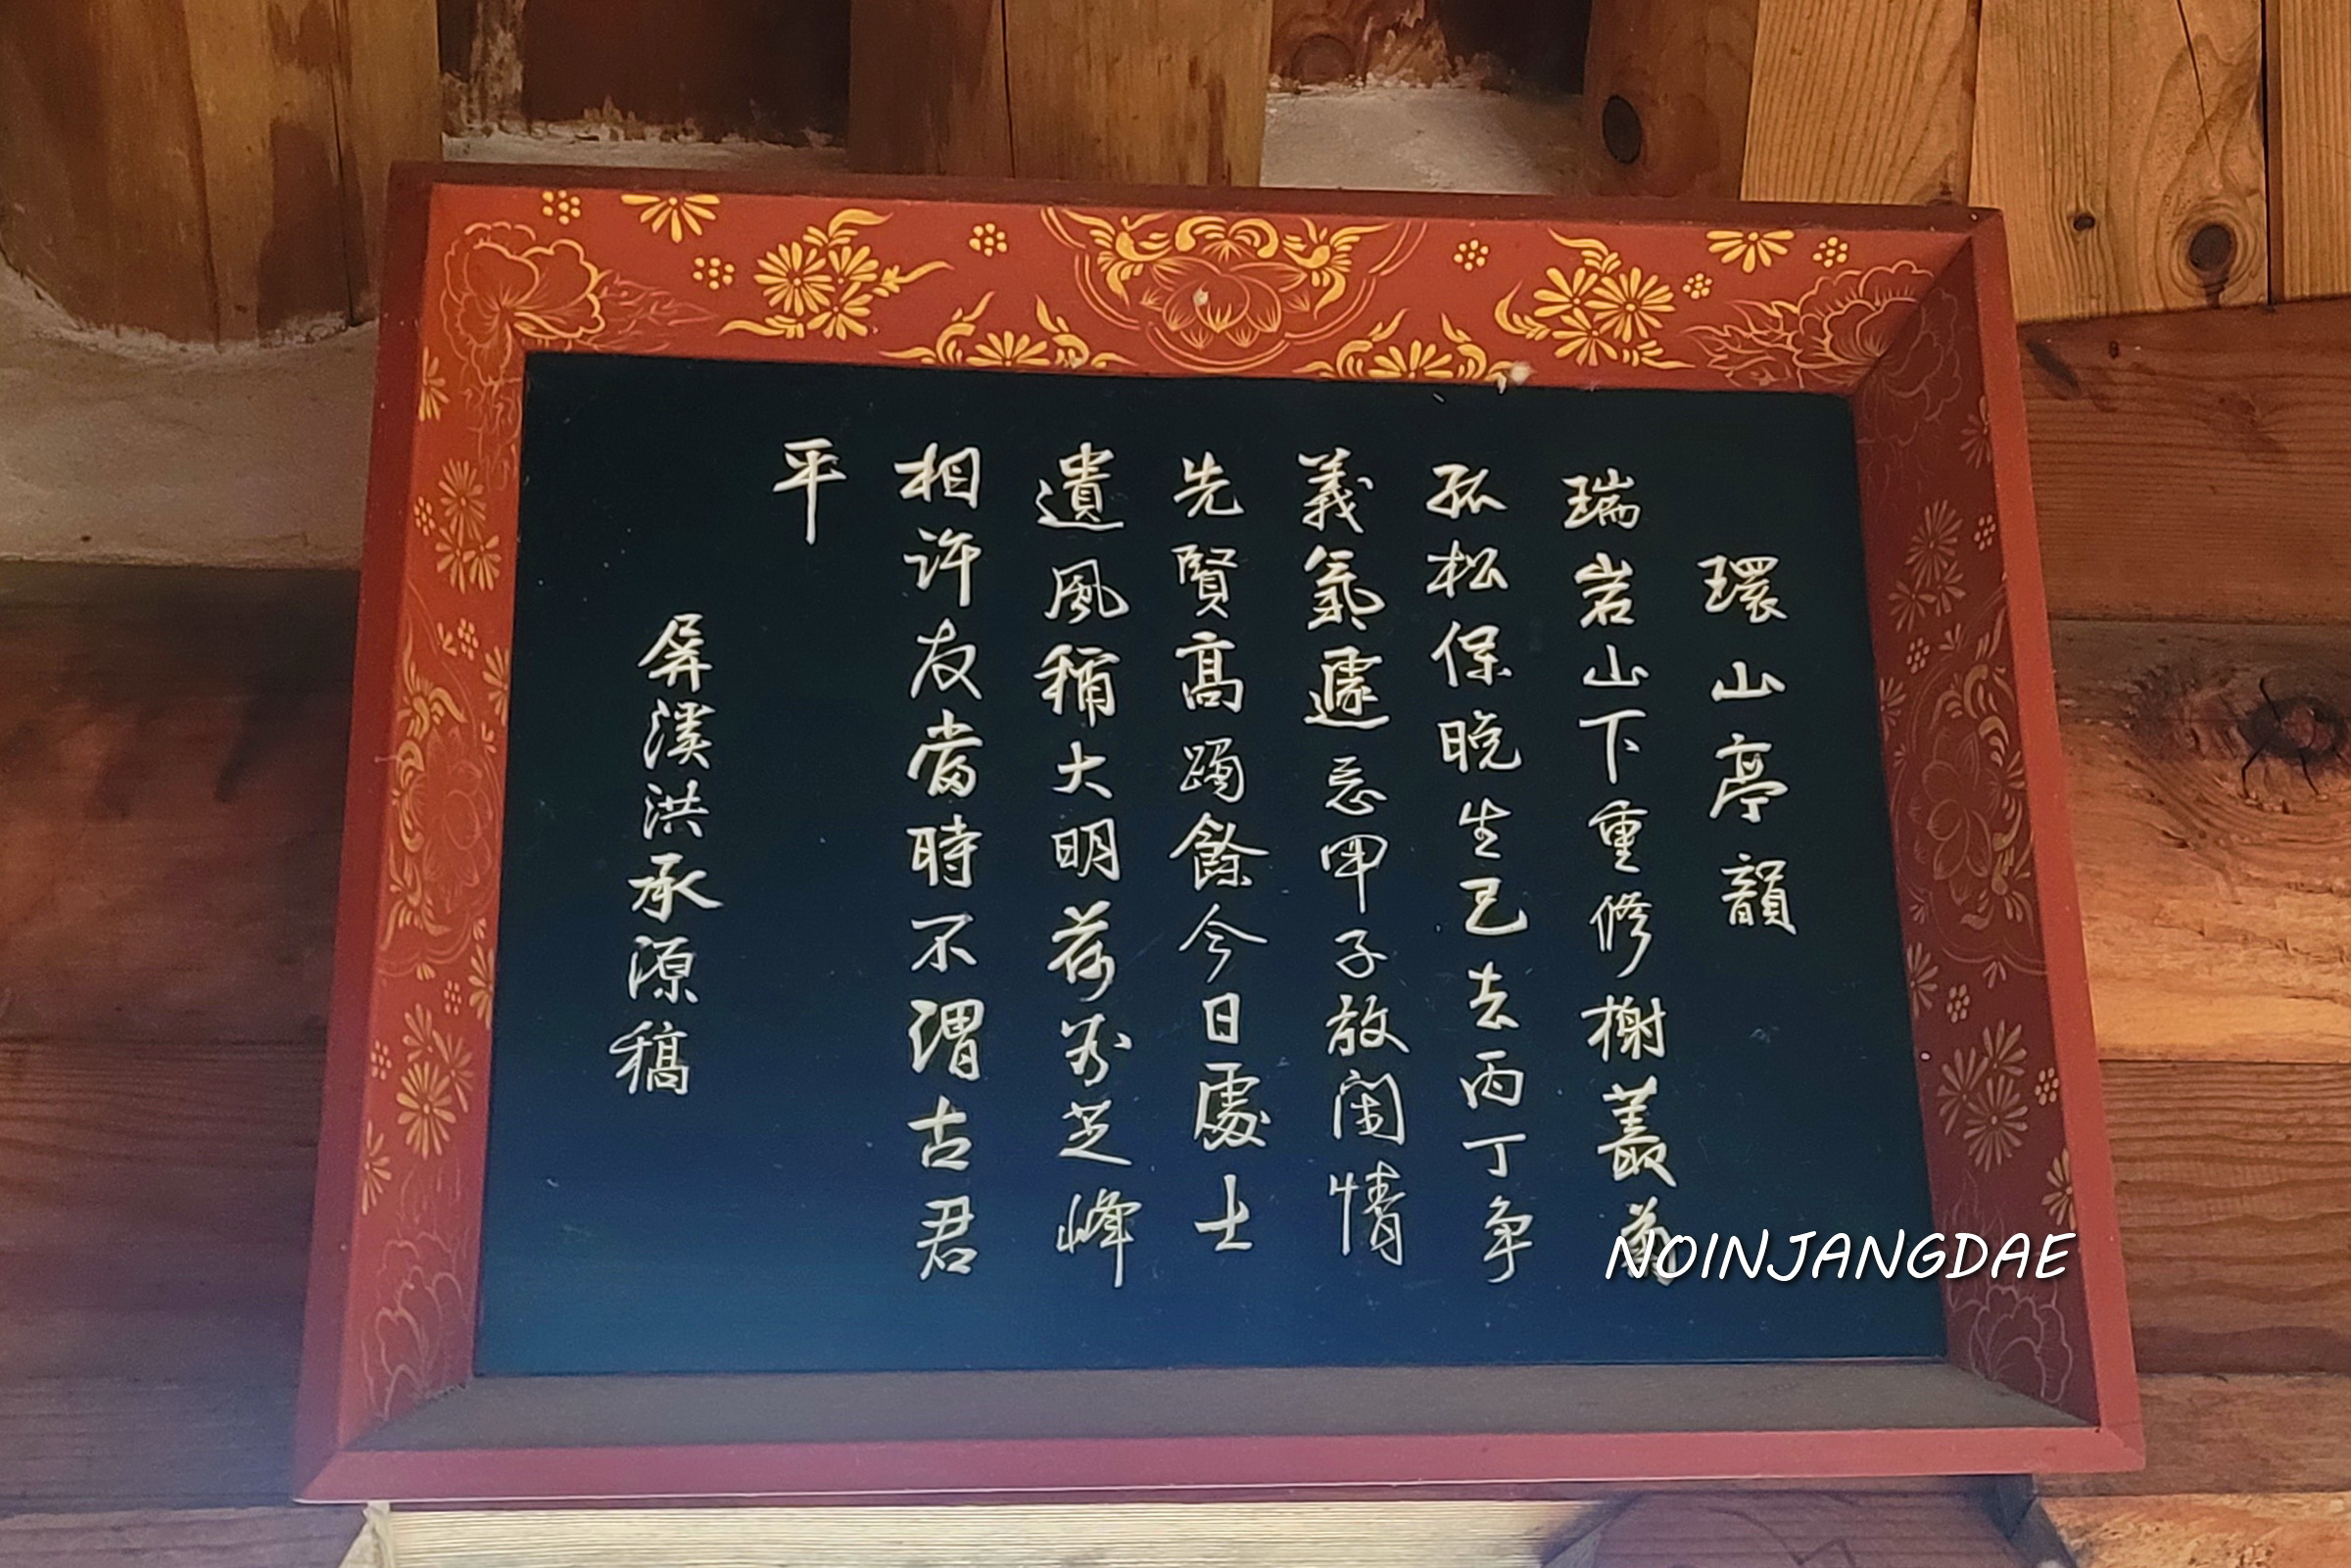 環山亭韻
瑞岩山下重修榭叢菊
孤松保晚生已去丙丁争
義氣遽忘甲子放閑情
先賢高躅餘今日處士
遺風稱大明荷芝峰
相許友當時不謂古君
平
屏溪洪承源稿
NOINJANGDAE